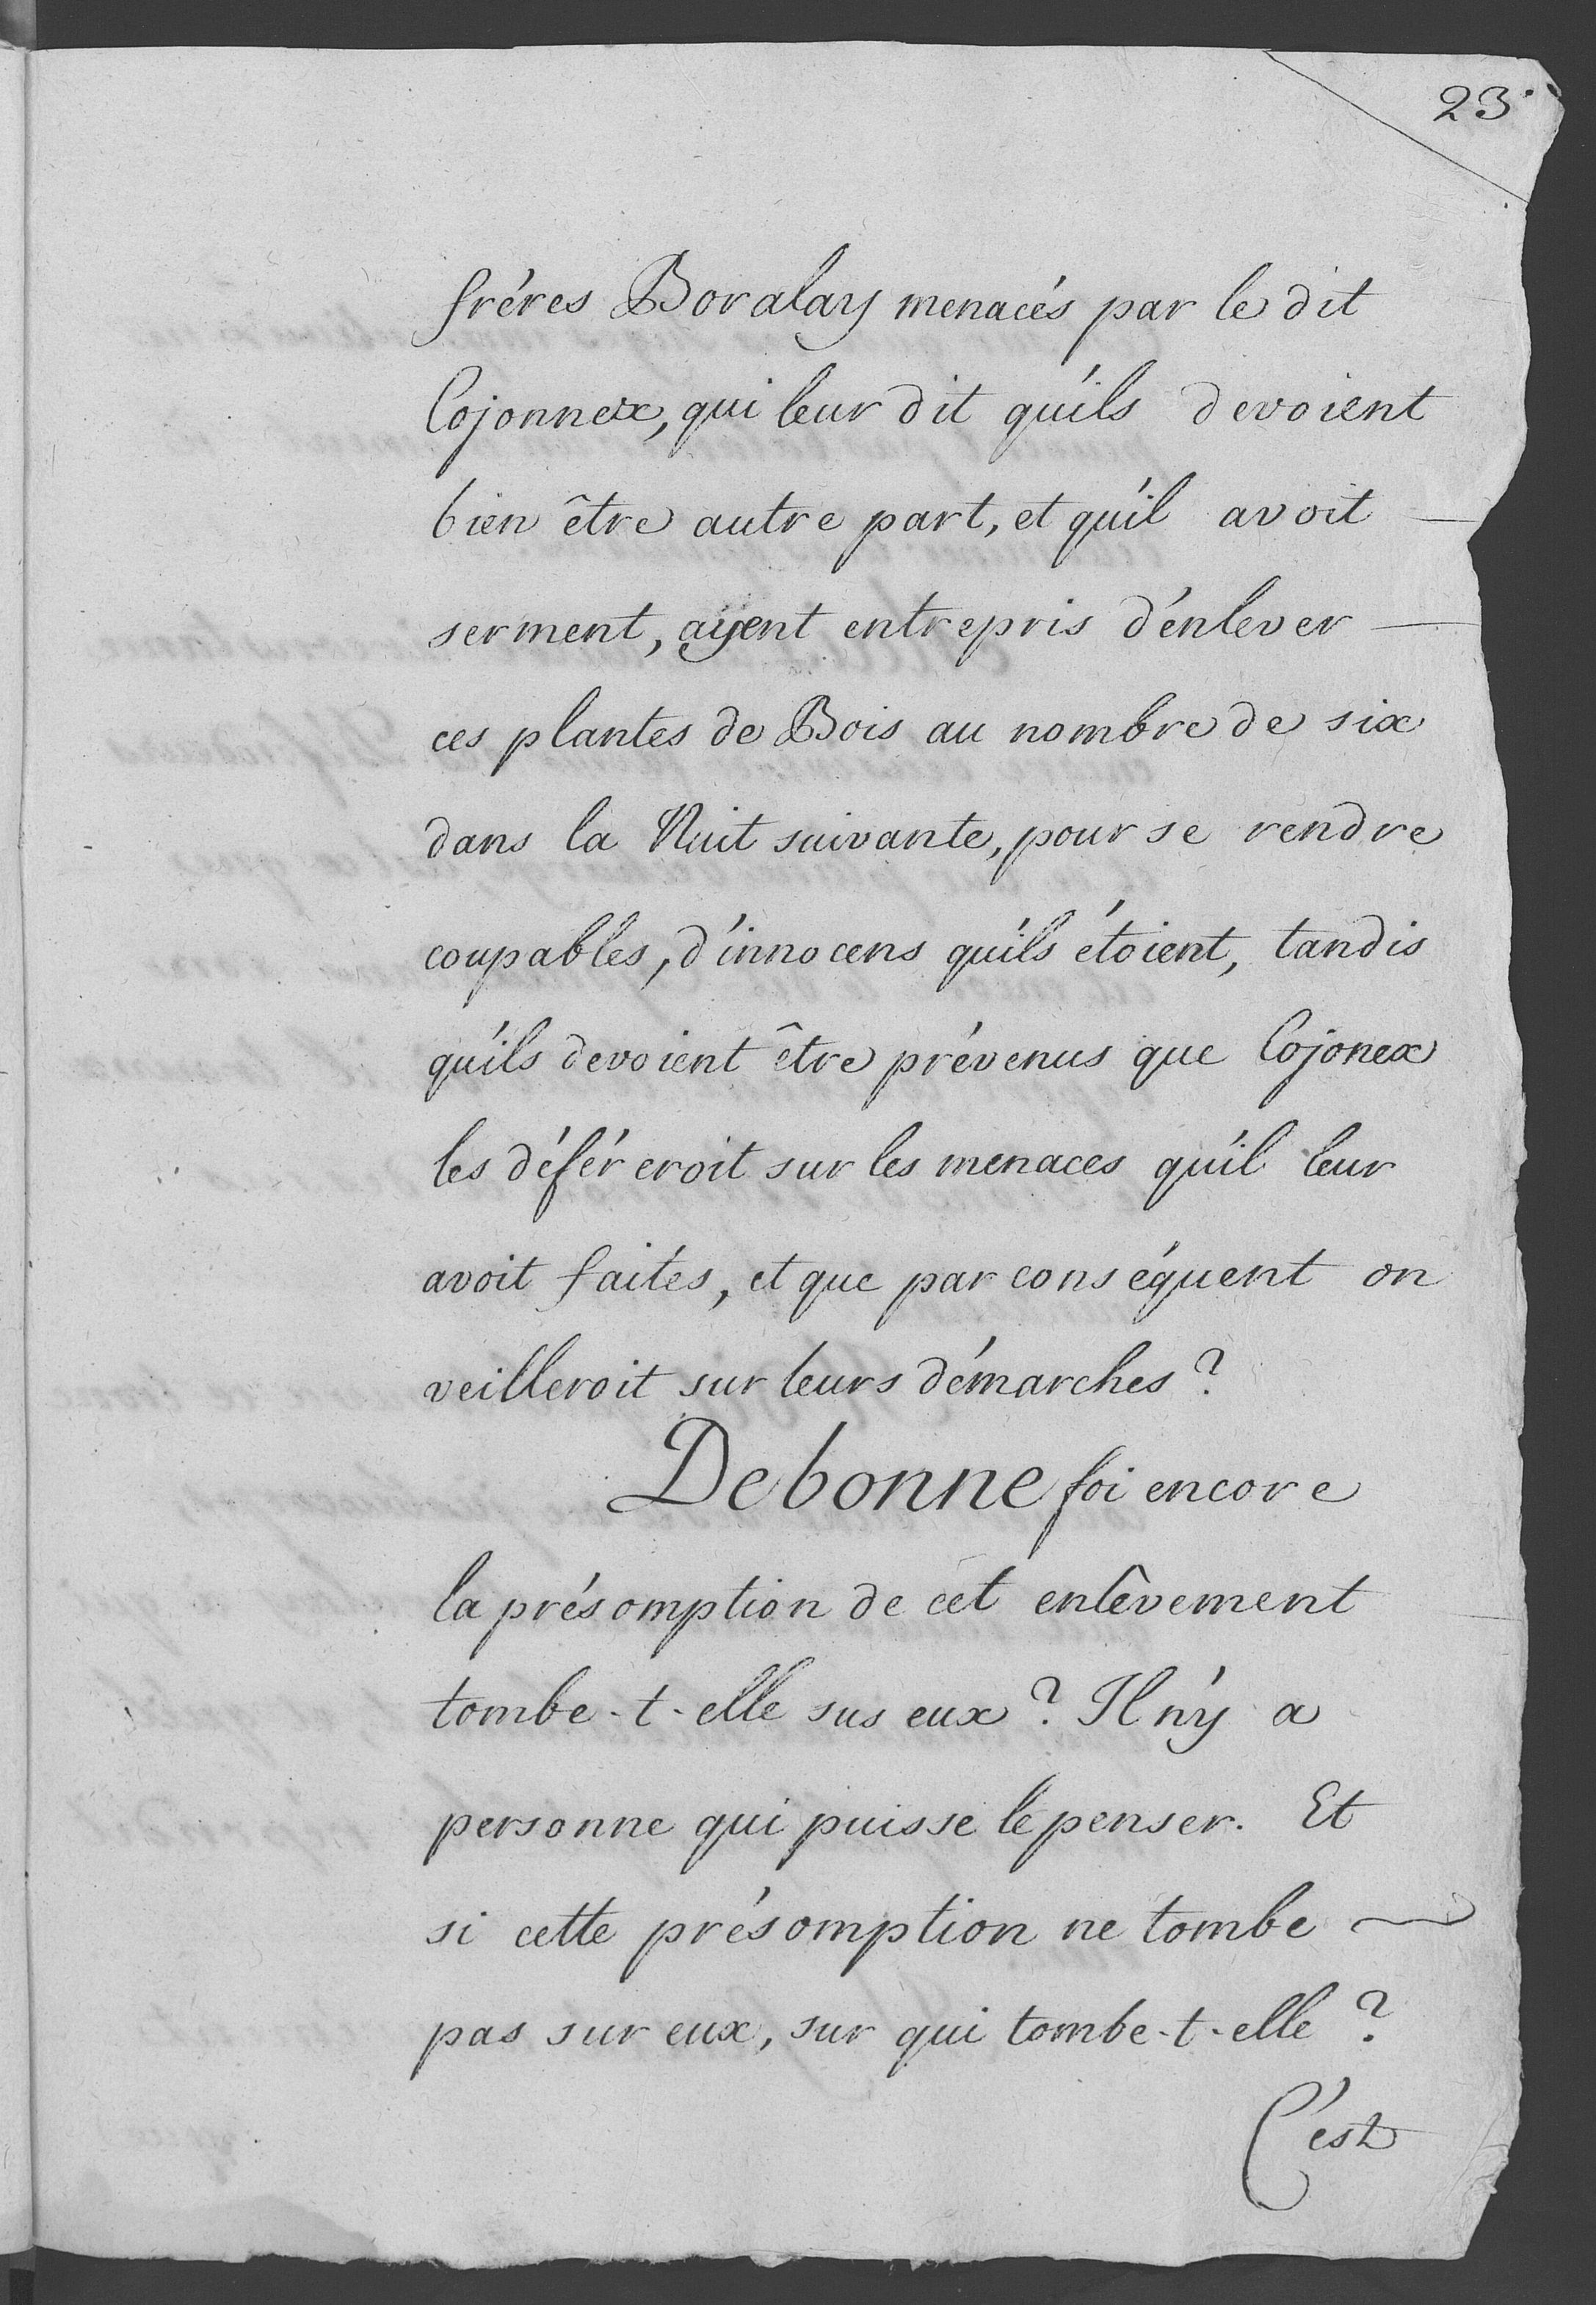 23.
fréres Boralay menacés par le dit
Cojonnex, qui leur dit qu'ils devoient
bien être autre part, et qu'il avoit
serment, ayent entrepris d'énlever
ces plantes de Bois au nombre de six
dans la Nuit suivante, pour se rendre
coupables, d'innocens qu'ils étoient, tandis
qu'ils devoient être prévenus que Cojonex
les déféreroit sur les menaces qu'il leur
avoit faites, et que par conséquent on
veilleroit sur leurs démarches?
De bonne foi encore
la présomption de cet enlêvement
tombe-t-elle sus eux? Il n'y a
personne qui puisse le penser. Et
si cette présomption ne tombe
pas sur eux, sur qui tombe-t-elle?
C'est